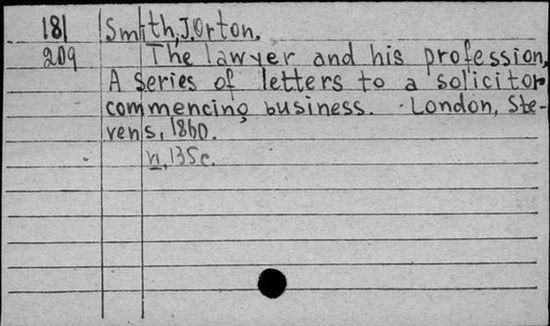 181 Smith, J. Orton.
209 The lawyer and his profession,
A series of letters to a solicitor
commencing business. London, Ste-
vens, 1860.
n, 135c.